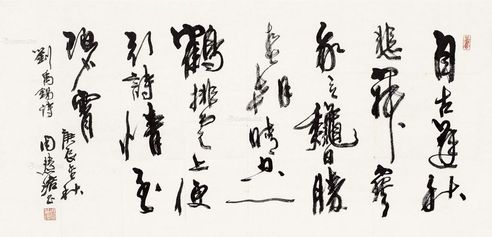 自古逢秋
悲寂寥
我言穐日勝
春朝晴空一
鶴排雲上便
引詩情到
碧霄
劉禹錫詩
庚辰秋
周慧珺书